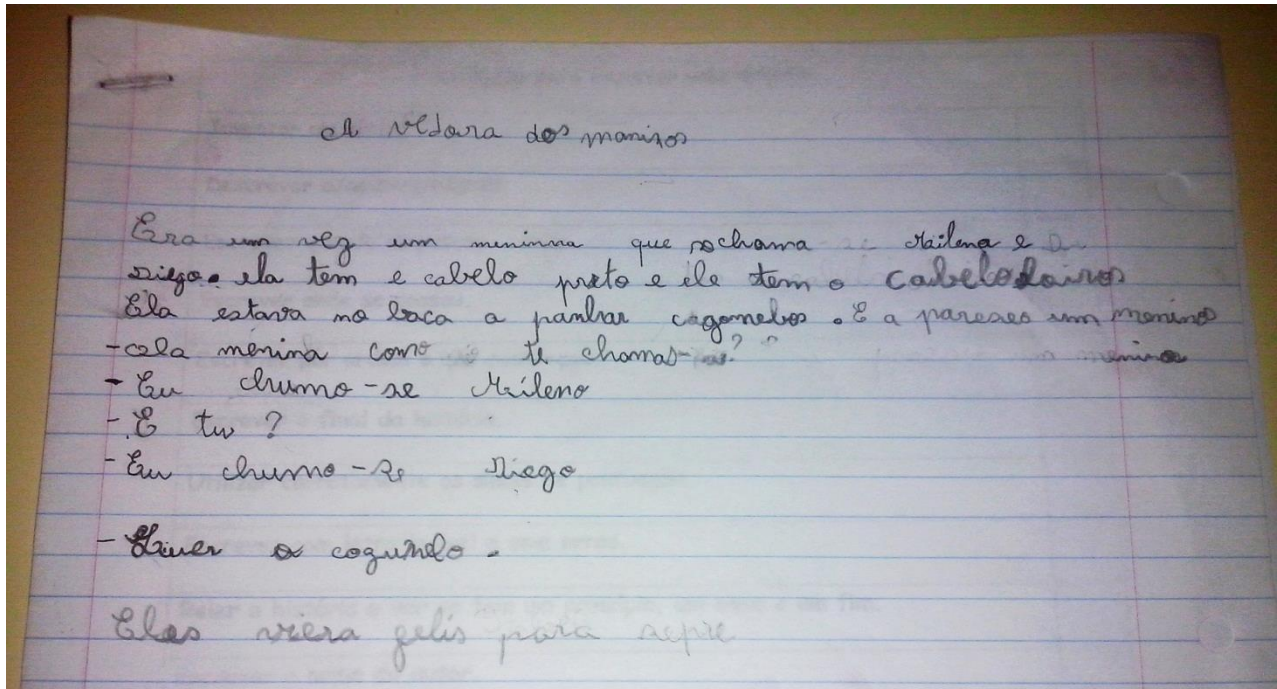 A vedora dos meninos
Era um vez um meninna que sechama Mailena e
Diego. ela tem e cabelo preto e ele tem o cabelo
Ela estava na a panhar cogomelos. E a pareseo um menino
- ola menina como te chamas-? menina
- Eu chumo-se Maileno
- E tu?
- Eu chumo-se Diego
- o cogumelo.
Eles viera felis para sepre